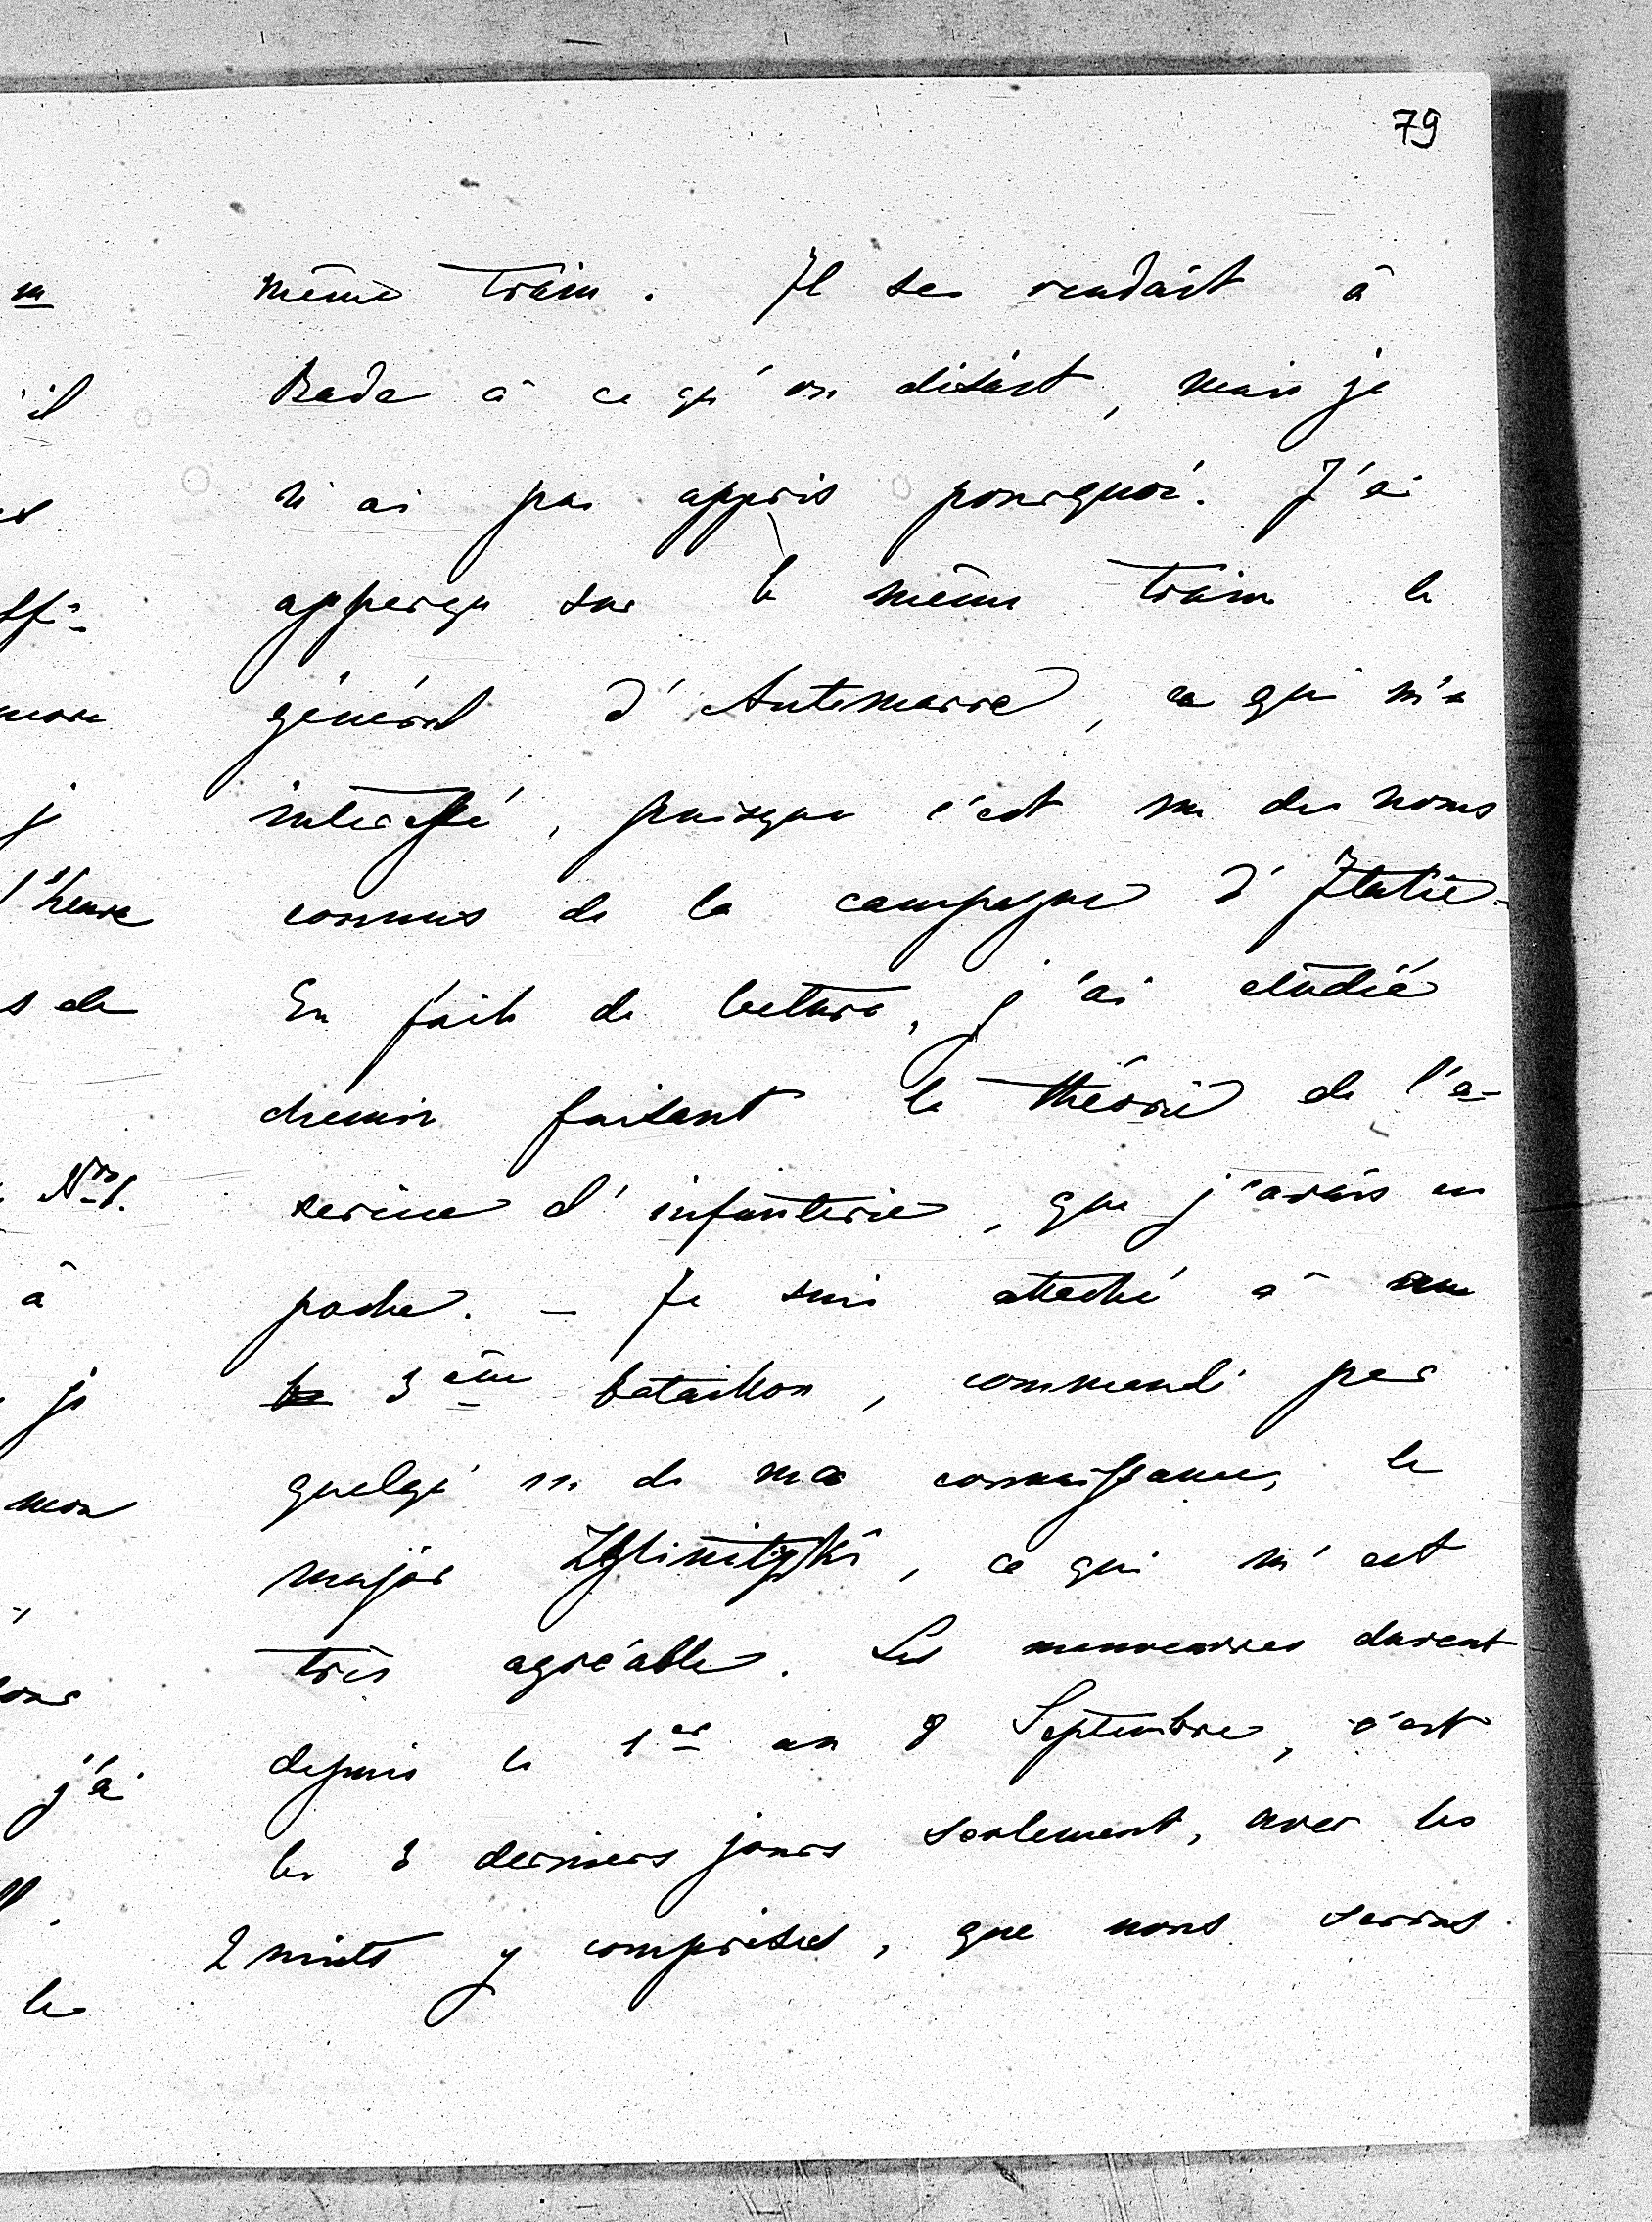 79
même train. Il se rendait à
Bade à ce qu'on disait, mais je
n'ai pas appris pourquoi. J'ai
apperçu sur le même train le
général d'Autemarre, ce qui m'a
interessé, puisque c'est un des noms
connus de la campagne d'Italie.
En fait de lecture, j'ai étudié
chemin faisant la théorie de l'e-
xercice d'infanterie, que j'avais en
poche. – Je suis attaché à au
le 3ème bataillon, commandé par
quelqu'un de ma connaissance, le
major Zglinitzki, ce qui m'est
très agréable. Les manoeuvres durent
depuis le 1er au 8 Septembre, c'est
les 3 derniers jours seulement, avec les
2 nuits y comprises, que nous serons